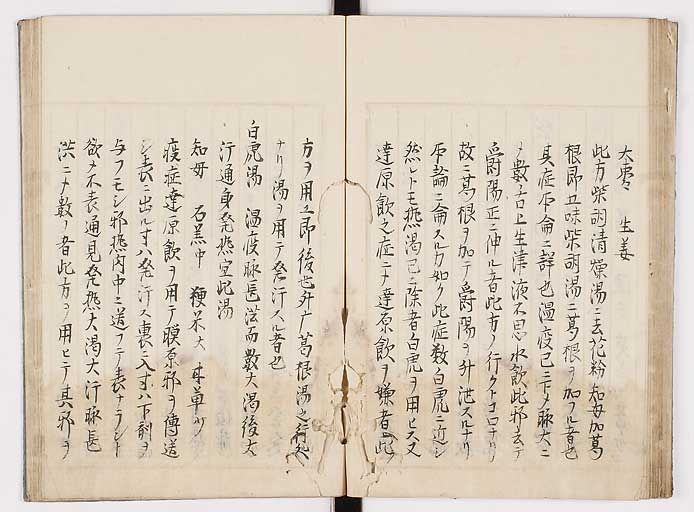 大棗 生姜
此方柴胡清燥湯ニ去花粉知母加葛
根即五味柴胡湯ニ葛根ヲ加フル者也
其症原論ニ詳也温疫已ニ下メ脉大ニ
メ數舌上生津液不思水飲此邪去テ
爵陽正ニ伸ル者此方ノ行クトコロナリ
故ニ葛根ヲ加テ爵陽ヲ升泄スルナリ
原論ニ論スルカ如ク此症数白虎ニ近シ
然レトモ燕渇已ニ除者白虎ヲ用ヒス又
達原飲之症ニテ達原飲ヲ嫌者此
方ヲ用ユ即後世升广葛根湯之行処
ナリ湯ヲ用テ発汗スル者也
白虎湯 温疫脉長洪而數大渇後大
汗通身発熱宜此湯
知母 石羔中 粳米大 甘草少
疫症達原飲ヲ用テ膜原邪ヲ傳送
シ表ニ出ル寸ハ発汗ス裏ニ入寸ハ下剤ヲ
与フモシ邪熱内中ニ送フテ表ナラント
欲メ不表通身発熱大渇大汗脉長
洪ニメ數ノ者此方ヲ用ヒテ其邪ヲ